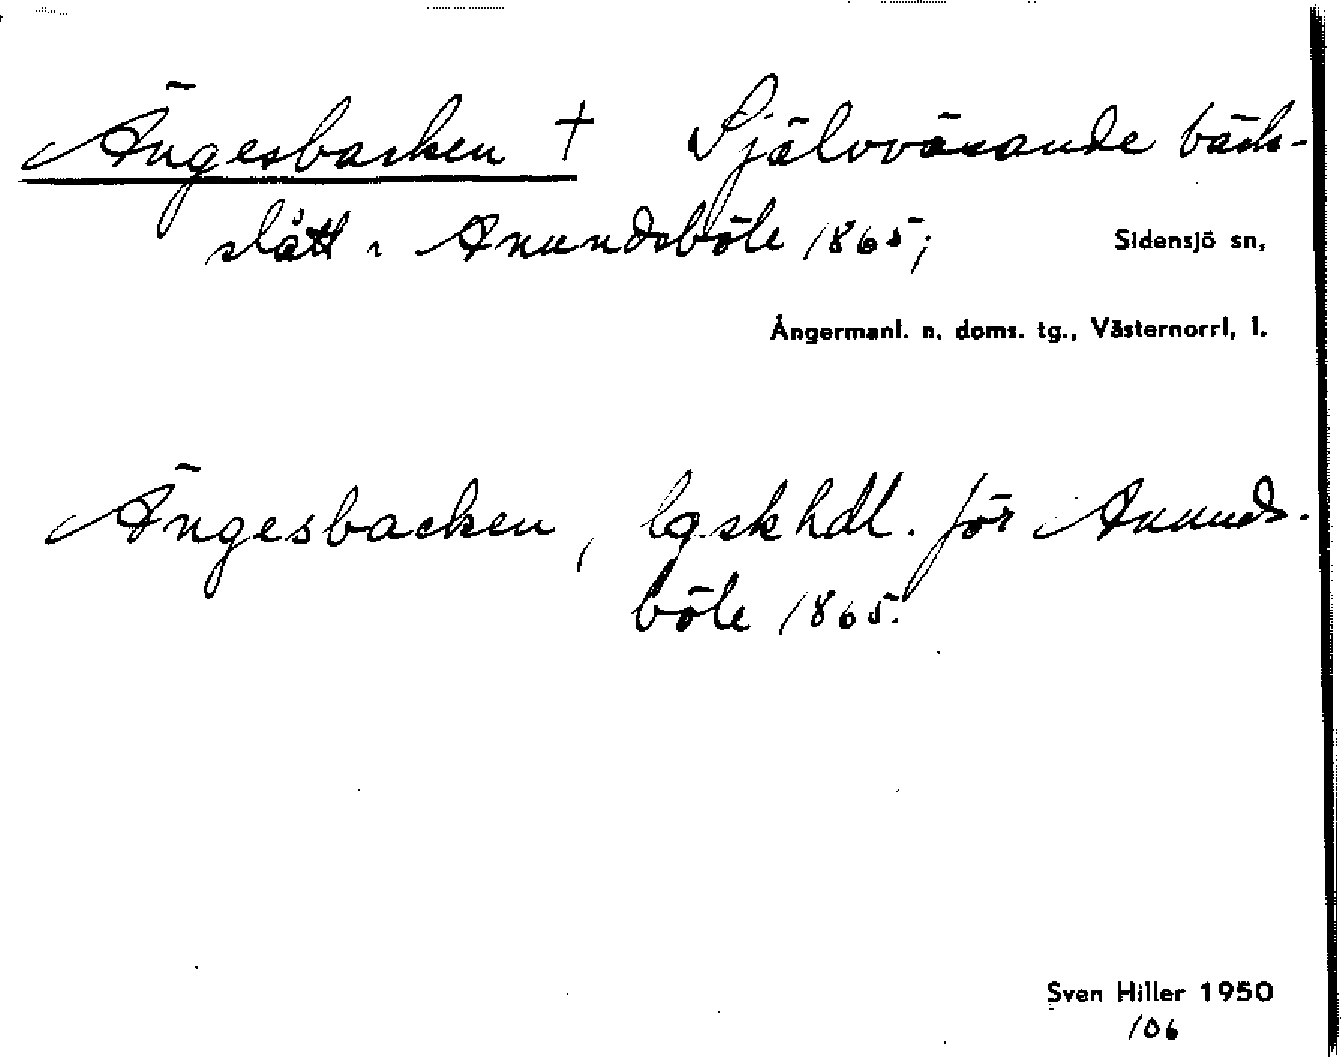 Ängesbacken † Självväxande bäck-
slått i Anundsböle 1865;
Sidensjö sn,
Ångermanl. n. doms. tg., Västernorrl, l.
Ängesbacken, lg.sk hdl. för Anunds-
böle 1865.
Sven Hiller 1950
106